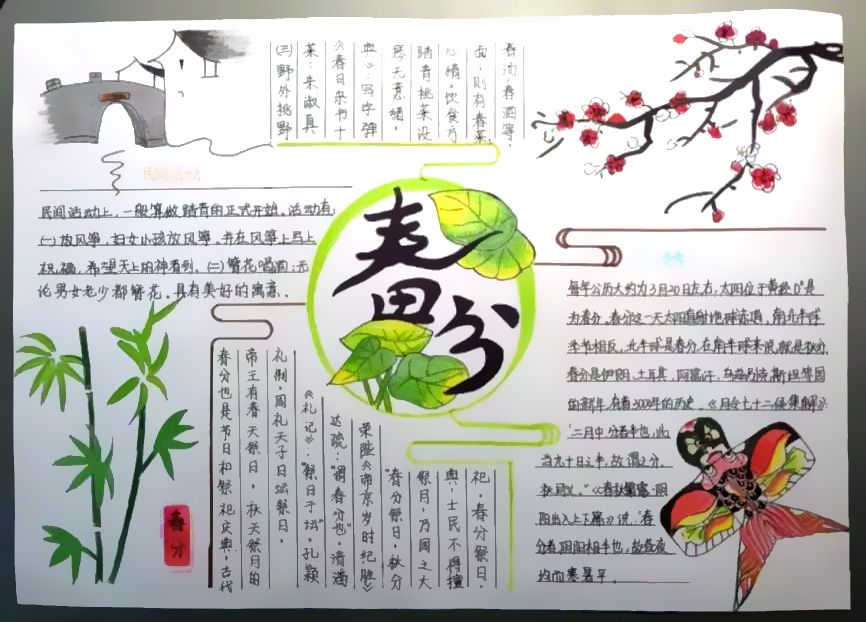 春分
民间活动上，一般算做踏青的正式开始。活动有：
(一)放风筝，妇女小孩放风筝，并在风筝上写上
祝福，希望天上的神看到。(二)簪花喝酒；无
论男女老少都簪花。具有美好的寓意。
(三)野外挑野
菜：朱淑真
《春日杂书十
典》：写字弹
琴无意绪，
踏青挑菜没
心情。饮食方
面，则有春菜、
春汤、春酒等。
每年公历大约为3月20日左右，太阳位于黄经0°是
为春分。春分这一天太阳直射地球赤道，南北半球
季节相反，北半球是春分，在南半球来说就是秋分。
春分是伊朗、土耳其、阿富汗、乌兹别克斯坦等国
的新年，有着3000年的历史。《月令七十二候集解》：
"二月中，分者半也，此
当九十日之半，故谓之分。
秋同义。"《春秋繁露·阴
阳出入上下篇》说："春
分者，阴阳相半也，故昼夜
均而寒暑平。
春分也是节日和祭祀庆典，古代
帝王有春天祭日，秋天祭月的
礼制。周礼天子日坛祭日。
《礼记》："祭日于坛。"孔颖
达疏："谓春分也"。清潘
荣陛《帝京岁时纪胜》
"春分祭日，秋分
祭月，乃国之大
典，士民不得擅
祀。春分祭日，
春分